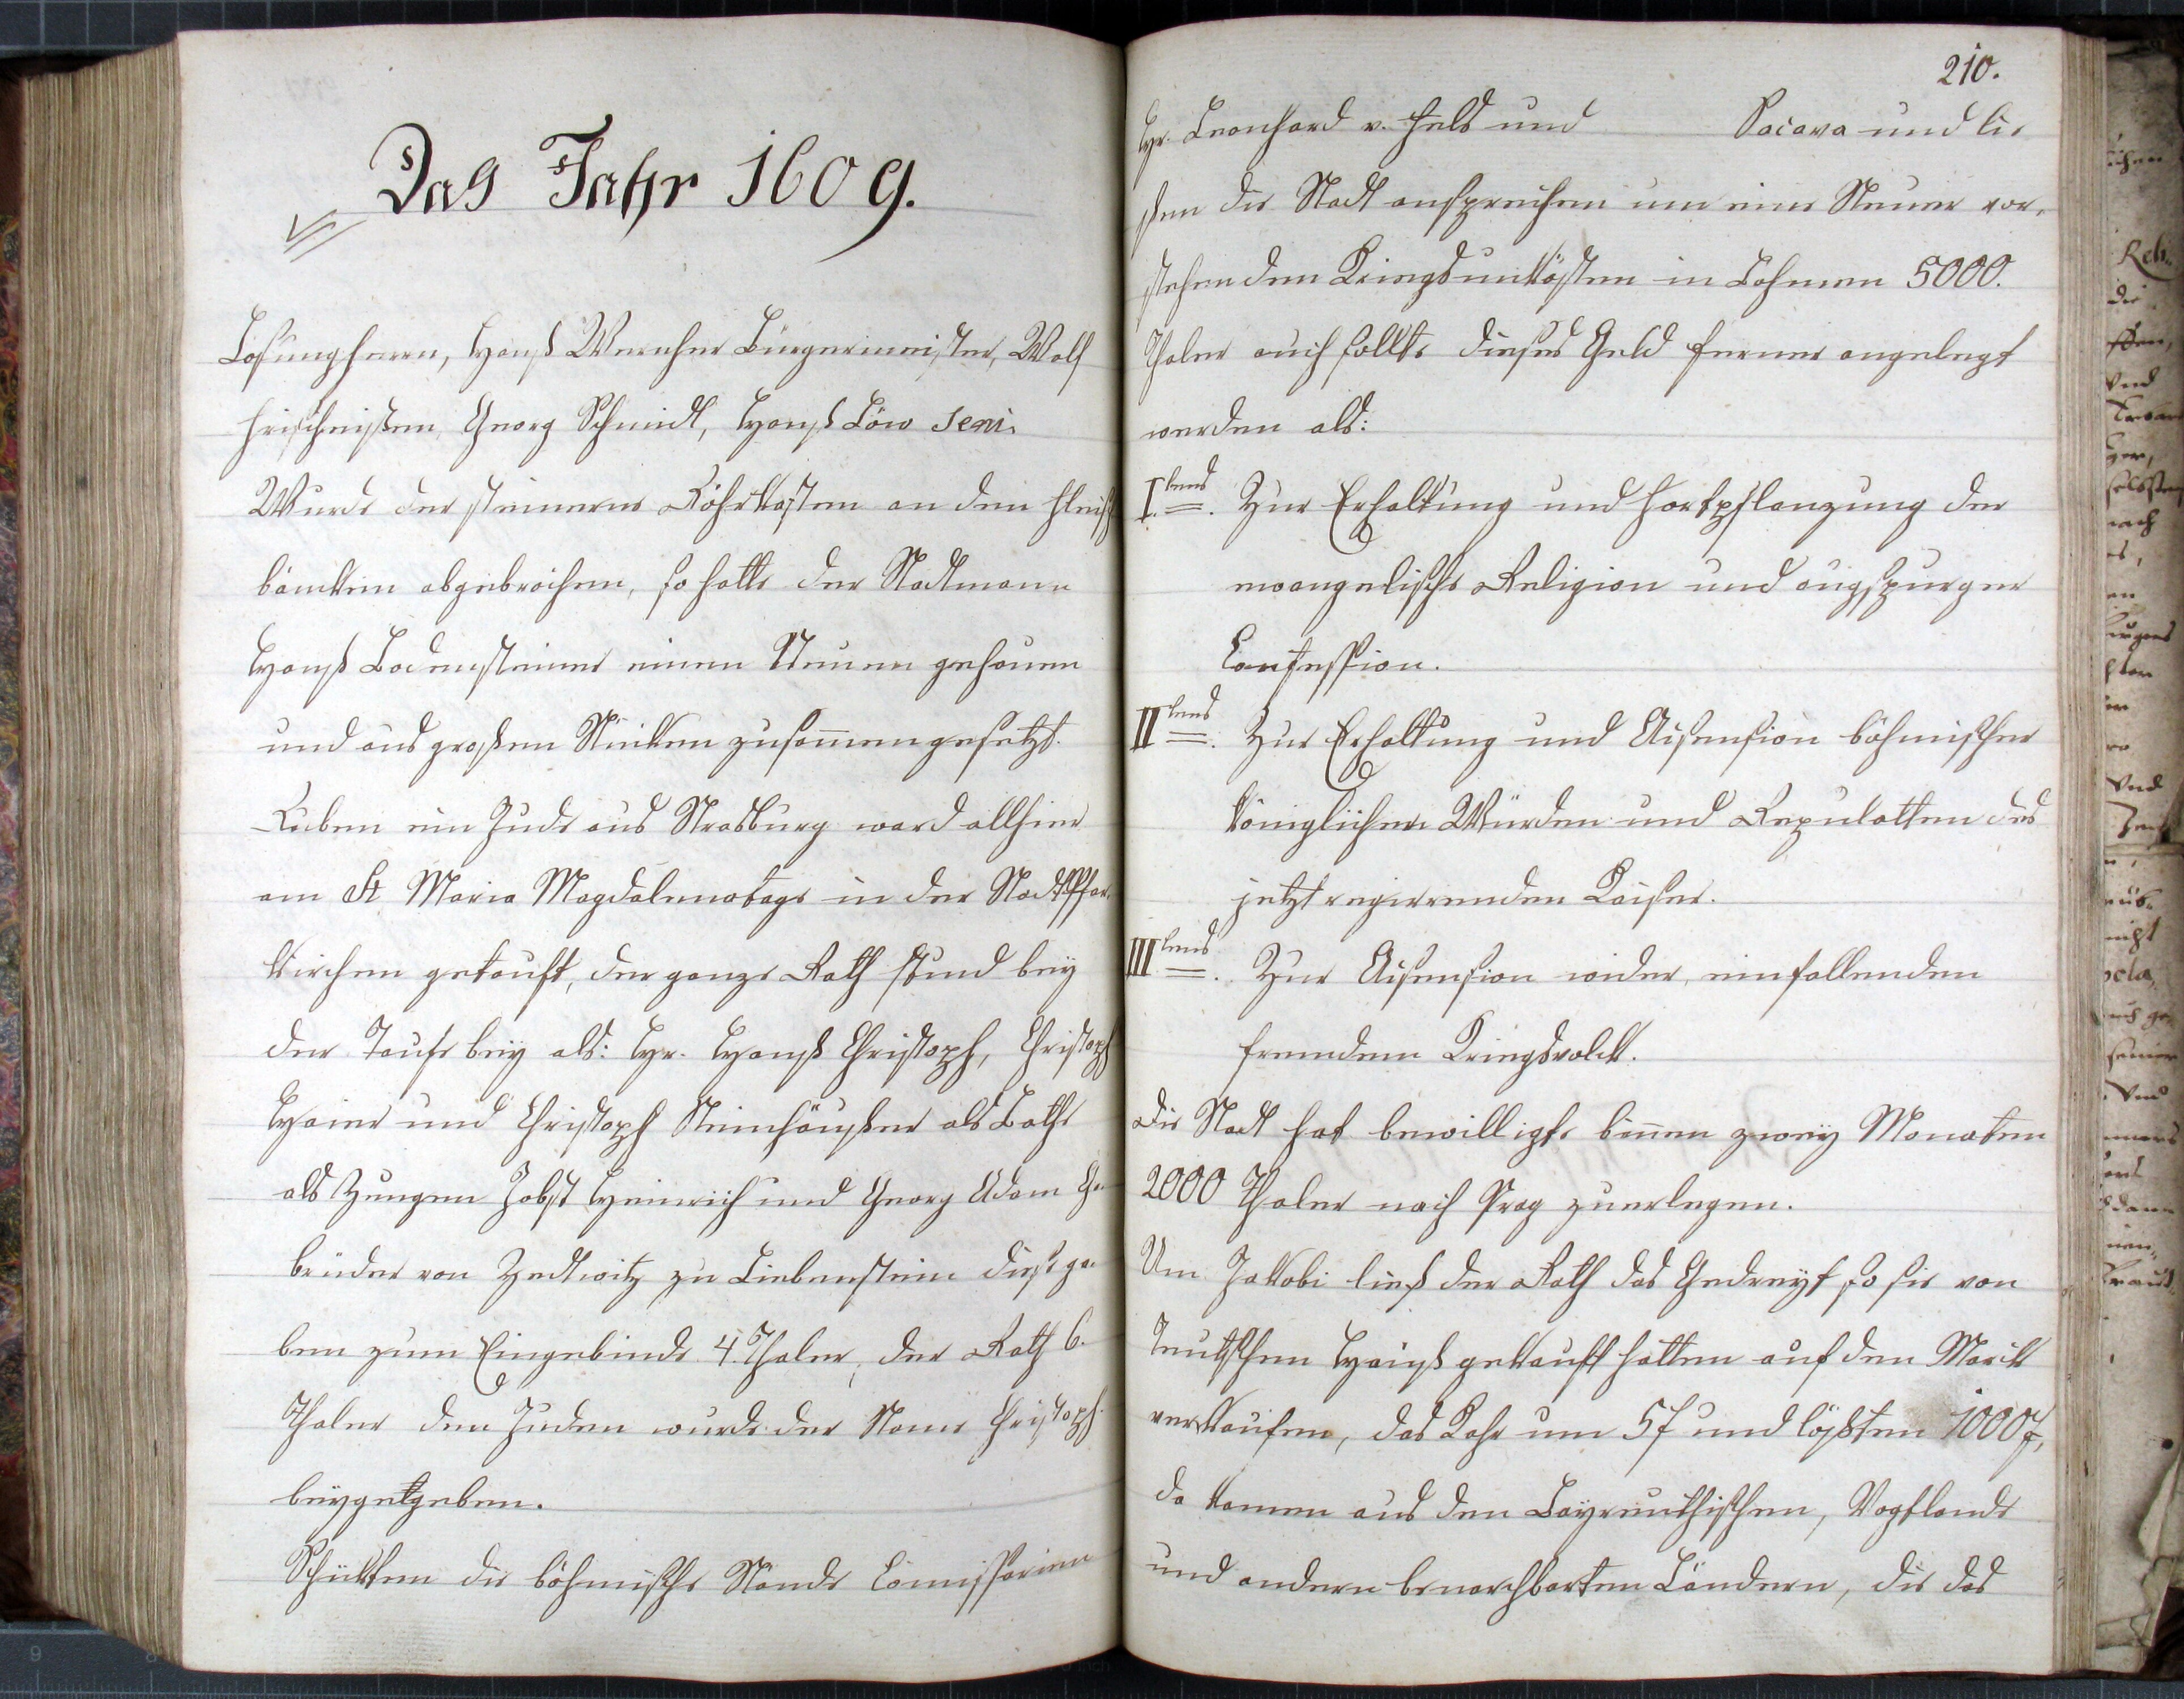 Das Jahr 1609.
Losungherrn, Hanß Wernher Burgermeister, Wolf
Frischeißen, Georg Schmidt, Hanß Löw Seni.
Wurde der steinerne Röhrkasten an den Fleisch
bäncken abgebrochen, so hatte der Stadtmann
Hanß Bodensteiner einen Neuen gehauen
und aus großen Stücken zusam̄engesetzt.
Ruben ein Jude aus Strasburg ward allhier
am St Maria Magdalenatage in der Stadtpfar,
kirchen getauft, der ganze Rath stund bey
der Taufe bey als: Hr. Hanß Christoph, Christoph
Haier und Christoph Steinhäußer als Rathe
als Zeugen Jobst Heinrich und Georg Adam Ge
brüder von Zedtwitz zu Liebenstein diese ga
ben zum Eingebinde 4. Thaler, der Rath 6.
Thaler dem Juden wurde der Name Christoph
beygelgeben.
Schickten die böhmische Stände Com̄issarien
210.
Hr. Leonhard v. Fels und Pacava und lie
ßen die Stadt ansprechen um eine Steuer vor,
stehendem Kriegsunkösten in Böhmen 5000.
Thaler auch sollte dieses Geld ferner angelegt
werden als:
I.tens Zur Erhaltung und Fortpflanzung der
evangelische Religion und augspurger
Confession.
II.tens Zur Erhaltung und böhmischer
königlichen Würden und Reputatten des
jetzt regierenden Kaiser.
III.tens Zur wider, einfallenden
fremdem Kriegsvolck.
Die Stadt hat bewilligte bin̄en zwey Monaten
2000 Thaler nach Prag zuerlegen.
Um Jakobi ließ der Rath das Gedreyt so sie von
Teutschen Hauß gekauft hatten auf den Markt
verkaufen, das Kahr um 5f und lößten 1000f,
da kamen aus den Bayreuthischen, Vogtlande
und andern benachbarten Ländern, die das